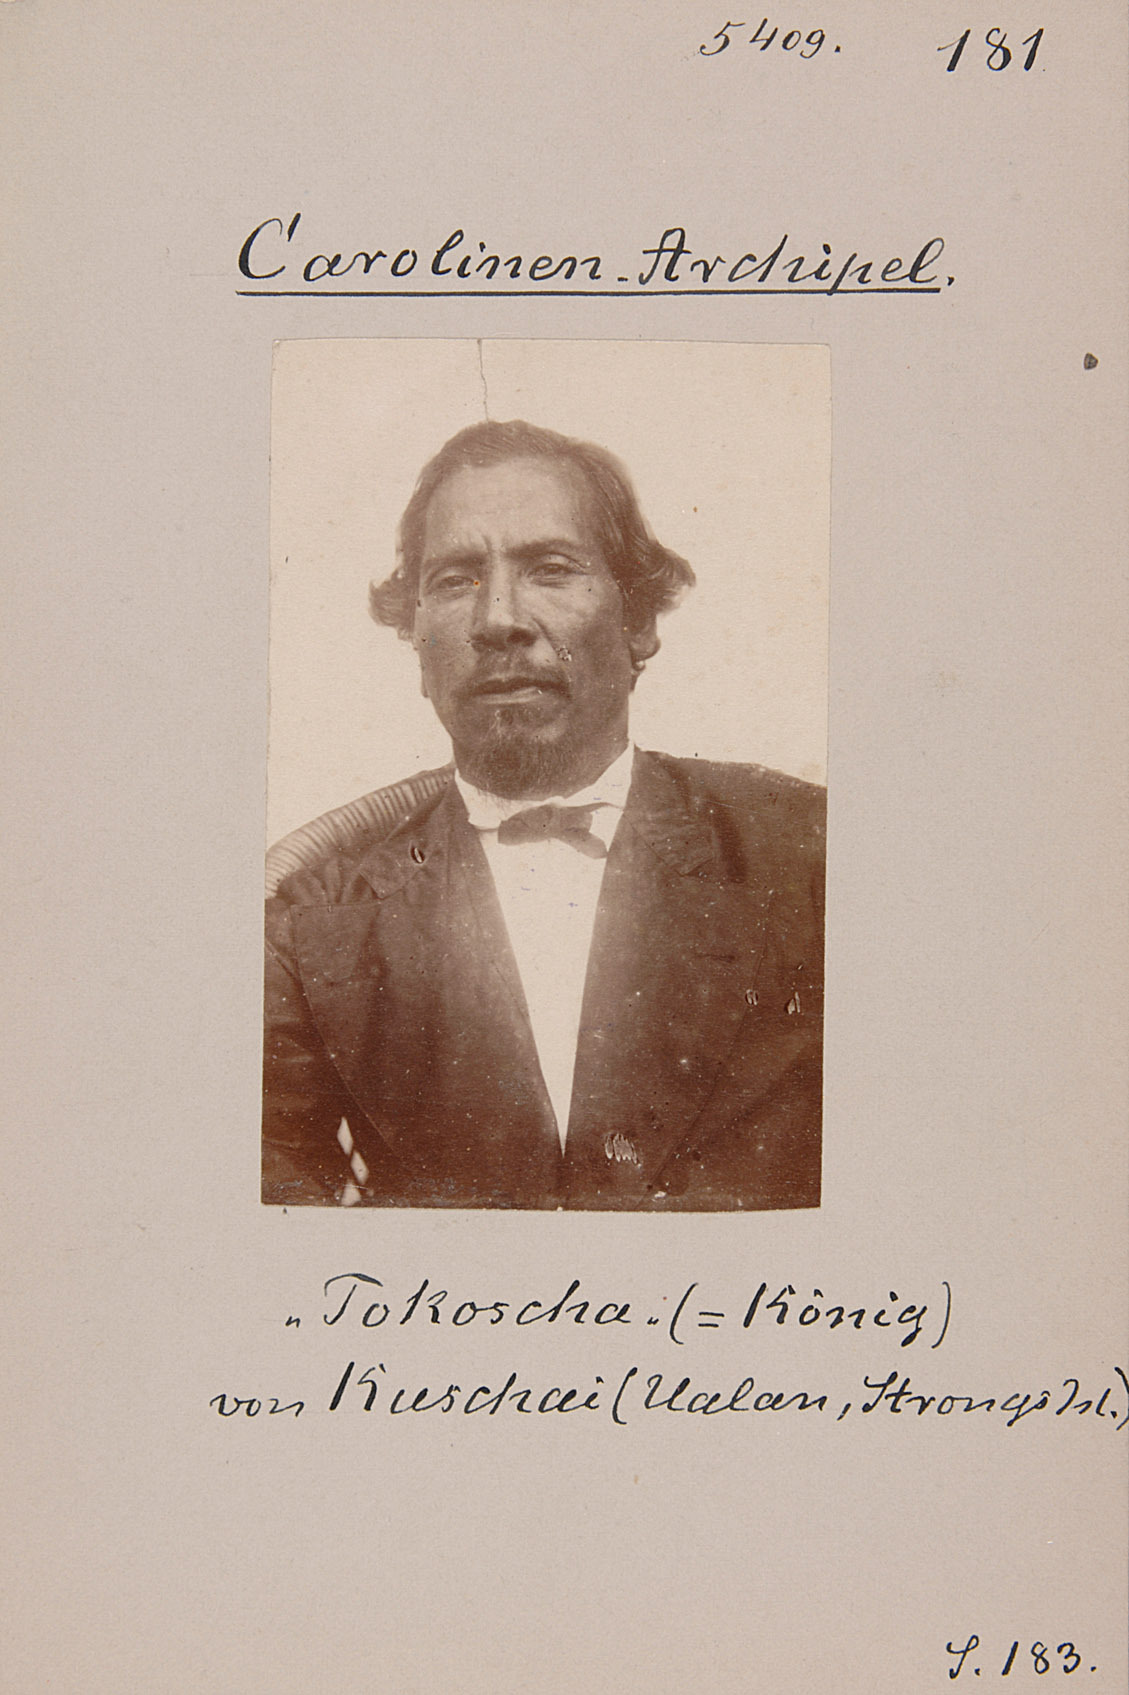 5409. 181
Carolinen-Archipel.
„Tokoscha„ (= König)
von Kuschai (Ualan, Strongs Isl.)
S. 183.